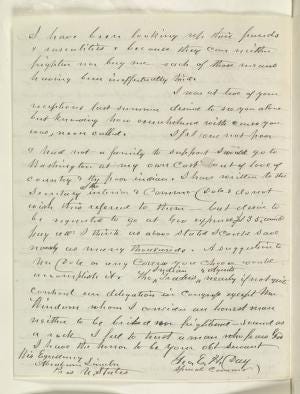 I have been looking up these frauds
& rascalities & because they can neither
frighten nor buy me each of those means
having been ineffectually tried.
I was at two of your
receptions last summer desired to see you alone
but knowing how overwhelmed with cares you
was, never called. If I was not poor
& had not a family to support I would go to
Washington at my own Cost out of love of
country & the poor indian. I have written to the
Secretary the interior & Commr (Dole & do not
wish this referred to them but desire to
be requested to go at Gov expense $350 would
pay all I think as above stated I could save
nearly as many thousands. A suggestion to
Mr Dole or any Corres you choose would
accomplish it. The Indian Traders & Agents nearly if not quite
control our delegation in Congress except Mr
Windom whom I consider an honest man
neither to be bribed nor frightened sound as
a rock. I feel to trust a man who fears God
I have the honor to be your obt servant
His Excellency
Abraham Lincoln
Pres U States
Geo. E. H. Day
Special Commr